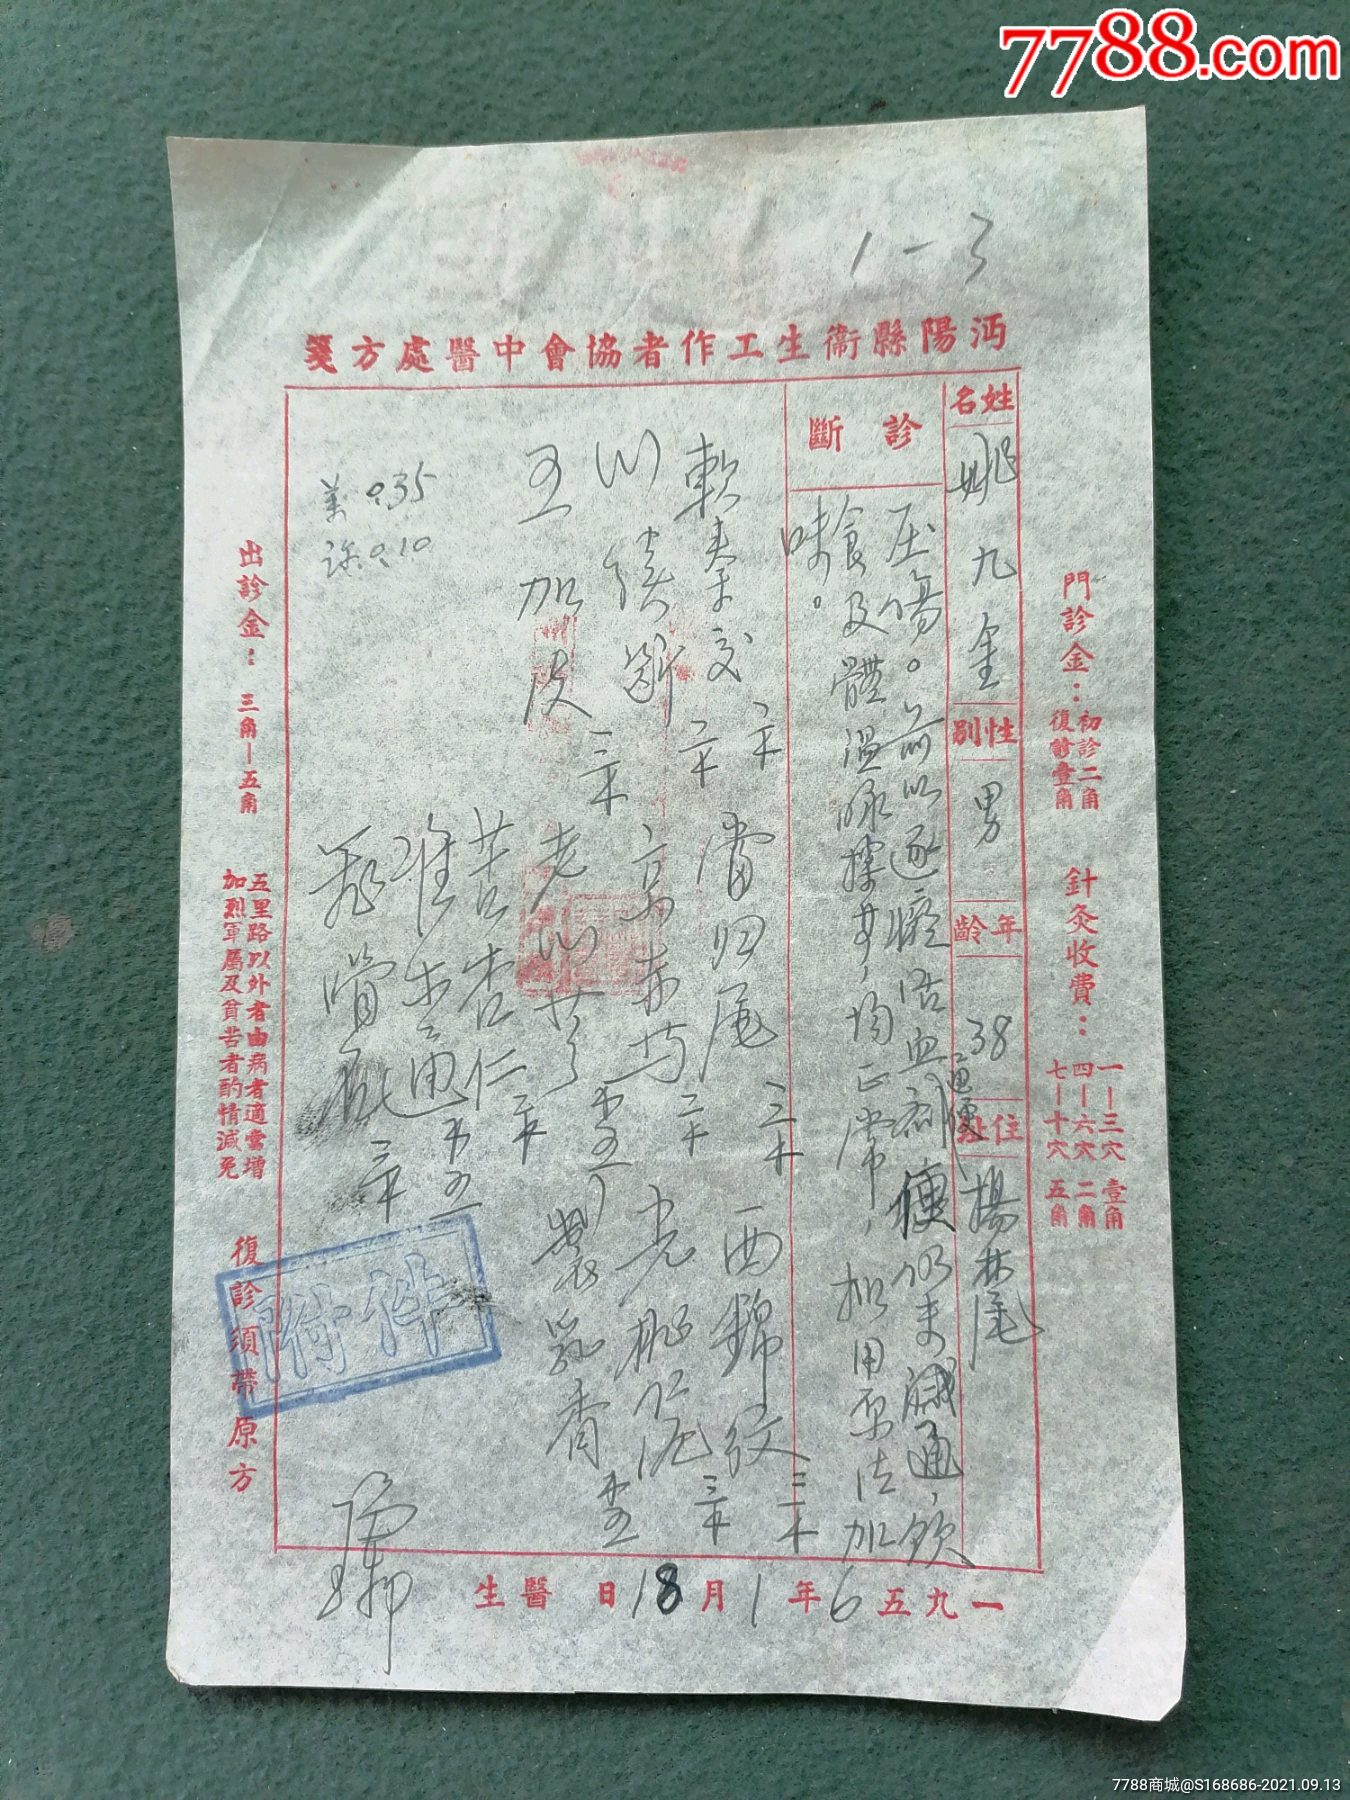 7788.com
1-3
沔陽縣衞生工作者協會中醫處方箋
姓名
姚九金
性別
男
年齡
38
住址
楊林尾
診斷
压傷。前以逐瘀活血剂
通便
便仍未減通,飲
食及體温脉搏等,均正常,拟用原法加
味。
軟秦艽 二錢
當归尾 三錢
西錦紋 三錢
川續斷 二錢
京赤芍 二錢
光桃泥 三錢
五加皮 三錢
老川芎
乳香
苦杏仁
0.35
0.10
門診金:初診二角
復診壹角
針灸收費:
一—三穴 壹角
四—六穴 二角
七—十穴 五角
出診金: 三角—五角
五里路以外者由病者適當增
加烈軍屬及貧苦者酌情減免
復診須帶原方
附件
一九五6年1月18日 醫生
7788商城@S168686-2021.09.13